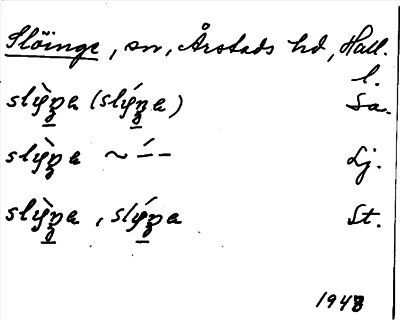 Slöinge, sn, Årstads hd, Hall.
l.
slỳŋa (slýŋa) Sa.
slỳŋa ~ –́ – Lj.
slỳŋa, slýŋa St.
1948